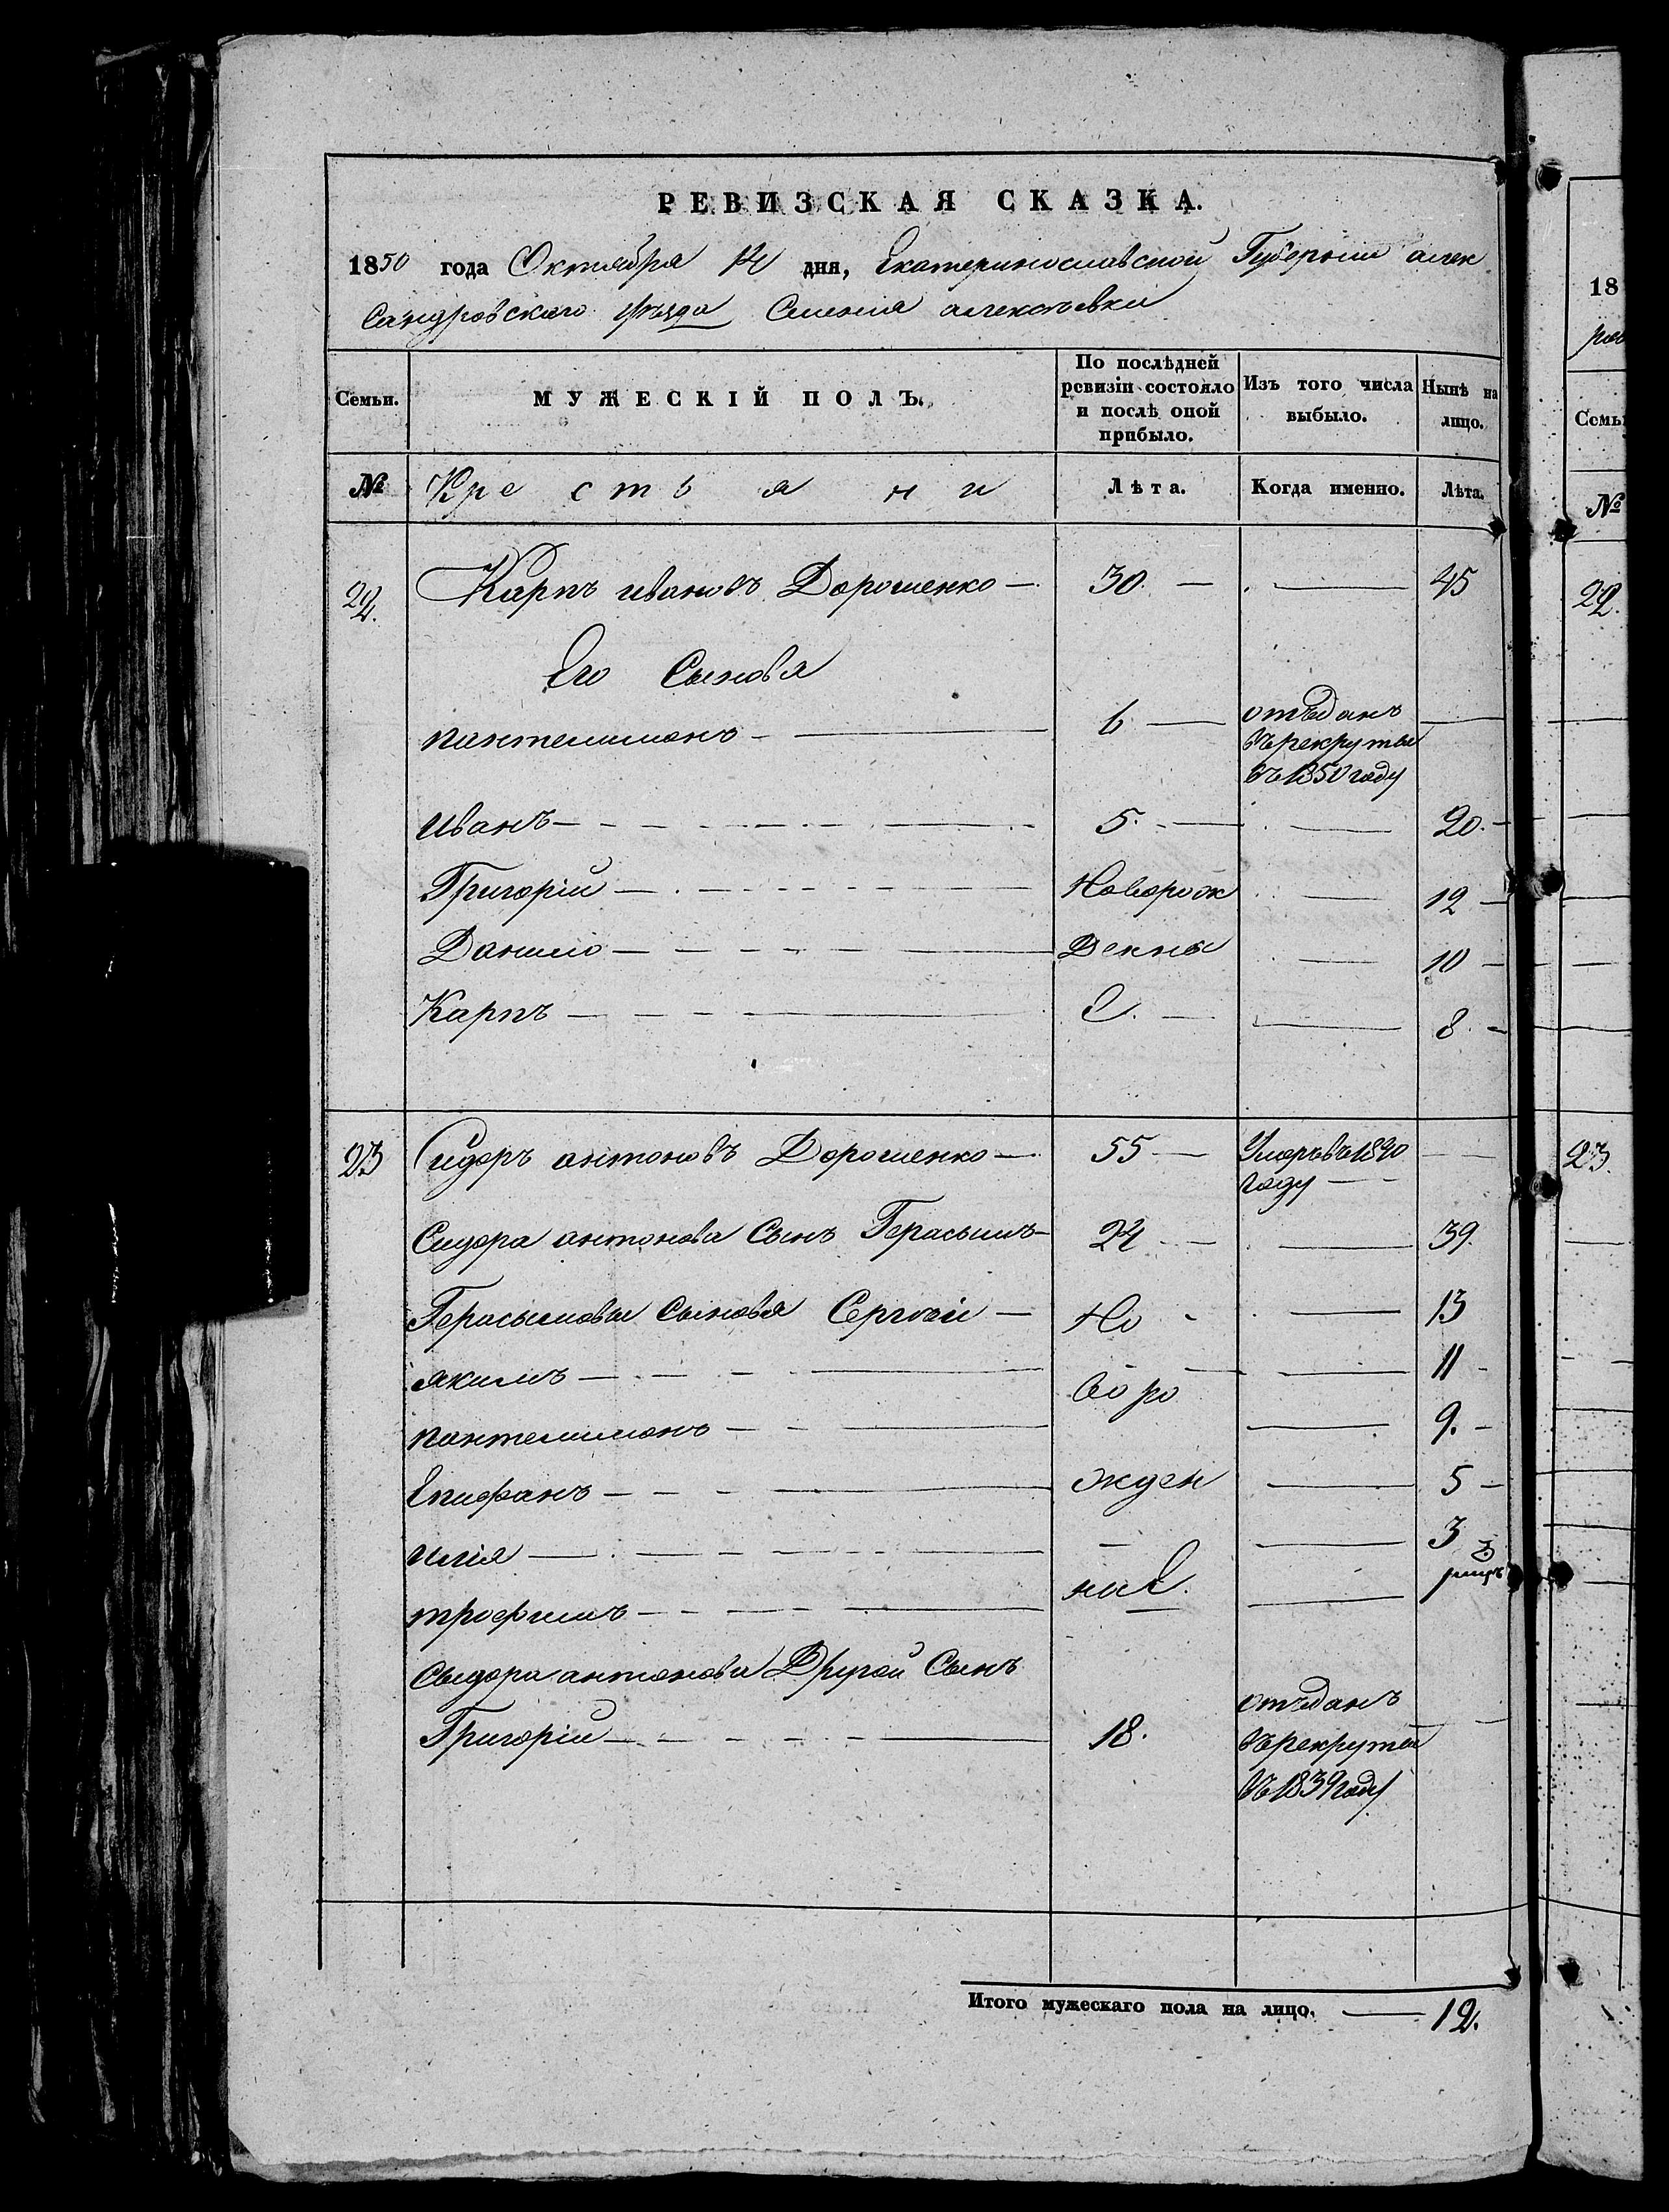 РЕВИЗСКАЯ СКАЗКА.
1850 года Октября 14 дня, Екатеринославской Губернии алек
Сандровского уъзда Селения алексъевки
Семьи. МУЖЕСКІЙ ПОЛЪ. По послѣдней ревизіи состояло и послѣ оной прибыло. Изъ того числа выбыло. Нынѣ на лицо.
№ Крестьяни Лѣта. Когда именно. Лѣта.
22. Карпъ ивановъ Дорошенко — 30. — — 45
Его Сыновя
пантелимонъ — 6 — отъданъ
върекруты
въ 1850 году
иванъ — 5. — — 20. —
Григорій — Новорож — 12 —
Данило — Денны — 10 —
Карпъ — Е. — — 8 —
23 Сидоръ антоновъ Дорошенко — 55 — Умеръвъ1840 —
году —
Сидора антонова Сынъ Герасымъ — 24 — — 39.
Герасымовы Сыновя Сергъй — Но — — 13
якимъ — — 11 —
воро
пантелимонъ — — 9. —
Епифанъ — жден — 5 —
илія — — 3
трофимъ — ные. —
Сыдора антонова Другой Сынъ
Григорій — 18. отъданъ —
върекруты
въ 1839 году
Итого мужескаго пола на лицо. — 12.
18
Семьи
№
22.
23.